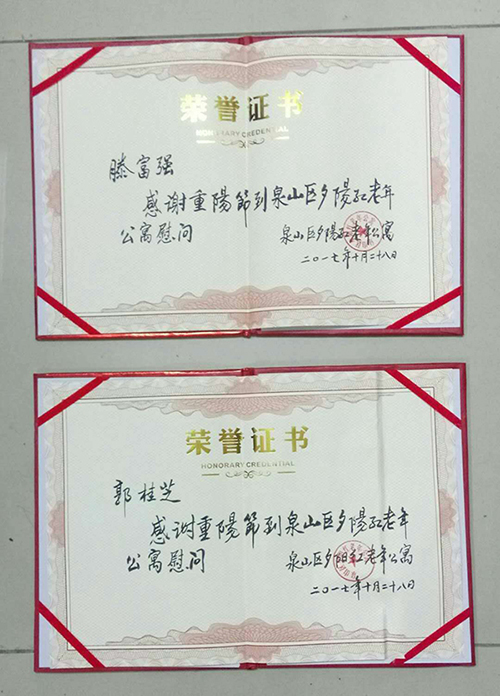 荣誉证书
HONORARY CREDENTIAL
滕富强
感谢重陽節到泉山区夕陽红老年
公寓慰问
泉山区夕陽红老年公寓
二〇一七年十月二十八日
荣誉证书
HONORARY CREDENTIAL
郭桂芝
感谢重陽節到泉山区夕陽红老年
公寓慰问
泉山区夕阳红老年公寓
二〇一七年十月二十八日